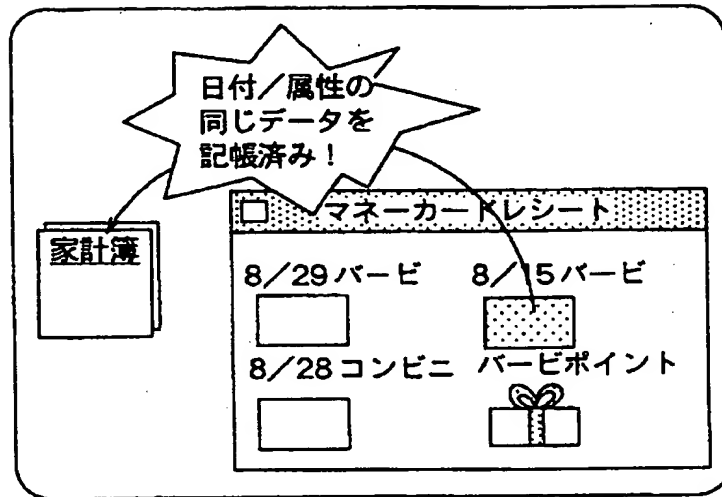 日付／属性の
同じデータを
記帳済み！
家計簿
マネーカードレシート
8／29バービ
8／15バービ
8／28コンビニ
バービポイント